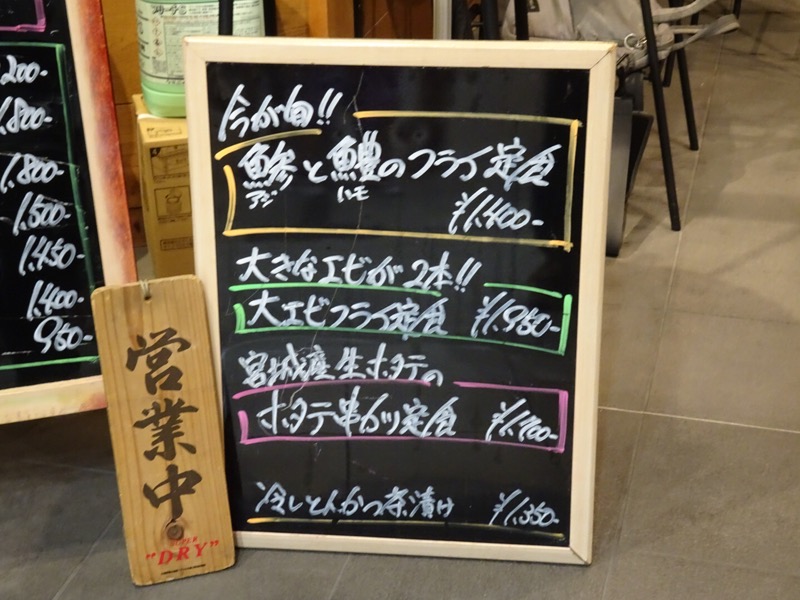 200-
1,800-
1,800-
1,500-
1,450-
1,400-
950-
今が旬!!
鯵と鱧のフライ定食
アジ ハモ
¥1,400-
大きなエビが2本!!
大エビフライ定食 ¥1,950-
宮城産生ホタテの
ホタテ串カツ定食 ¥1,700-
冷しとんかつ茶漬け ¥1,350-
営業中
SUPER
"DRY"